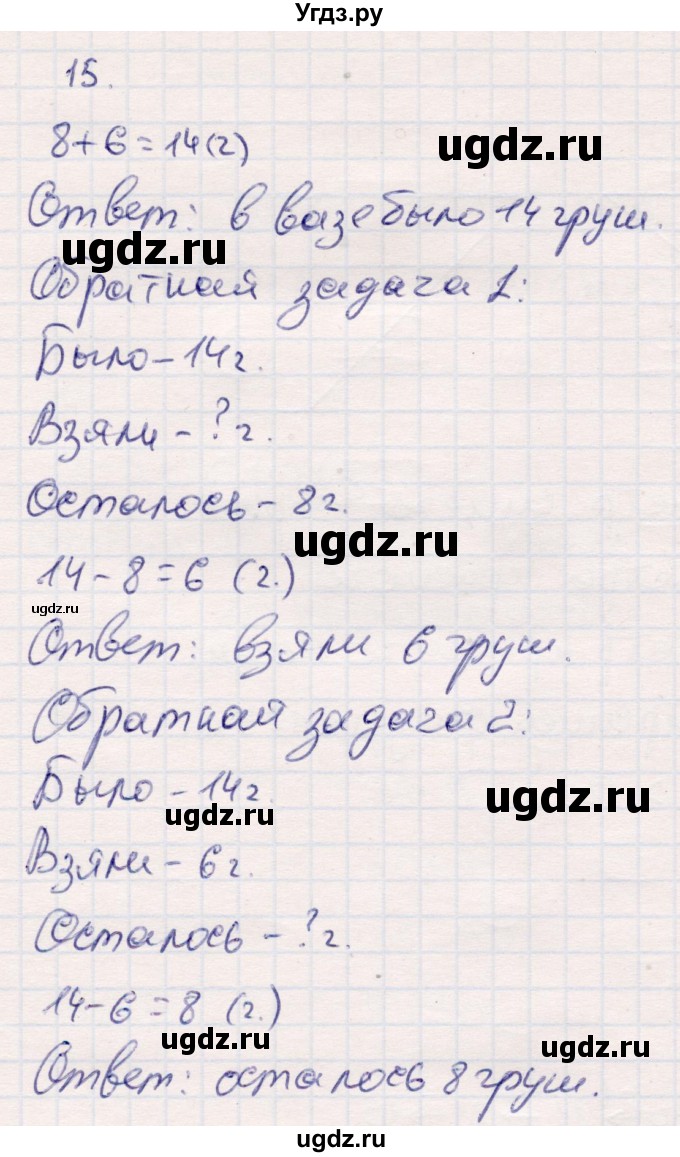 Угдз.ру
15.
8+6=14(г)
ugdz.ru
Ответ: в вазе было 14 груш.
ugdz.ru
Обратная задача 1:
Было – 14 г.
Взяли – ? г.
Осталось – 8 г.
ugdz.ru
14-8=6 (г.)
ugdz.ru
Ответ: взяли 6 груш.
Обратная задача 2:
Было – 14 г.
ugdz.ru
ugdz.ru
Взяли – 6 г.
Осталось – ? г.
14-6=8 (г.)
ugdz.ru
ugdz.ru
Ответ: осталось 8 груш.
ugdz.ru